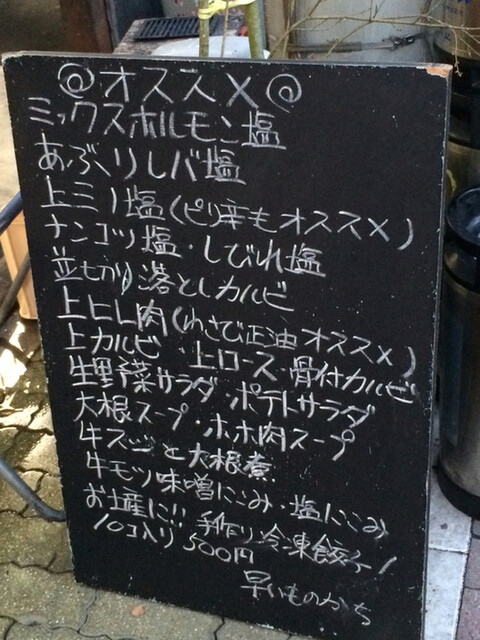 ◎オススメ◎
ミックスホルモン塩
あぶりレバ塩
上ミノ塩(ピリ辛もオススメ)
ナンコツ塩・しびれ塩
並切り落としカルビ
上ヒレ肉(わさび正油オススメ)
上カルビ・上ロース・骨付カルビ
生野菜サラダ・ポテトサラダ
大根スープ・ホホ肉スープ
牛スジと大根煮
牛モツ味噌にこみ・塩にこみ
お土産に!!手作り冷凍餃子!
10コ入り500円
早いものかち